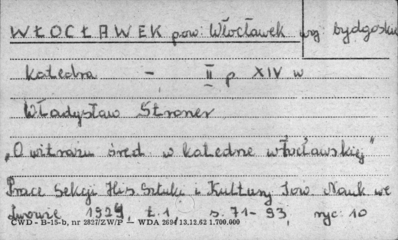 WŁOCŁAWEK pow. Włocławek woj. bydgoskie
katedra - II p XIV w
Władysław Stroner
„O witrażu śred. w katedrze włocławskiej"
Prace Sekcji His. Sztuki i Kultury Tow. Nauk we
Lwowie 1929, t. 1 s. 71-93, ryc. 10
CWD - B-15-b, nr 2827/ZW/P - WDA 2694 13.12.62 1.700.000